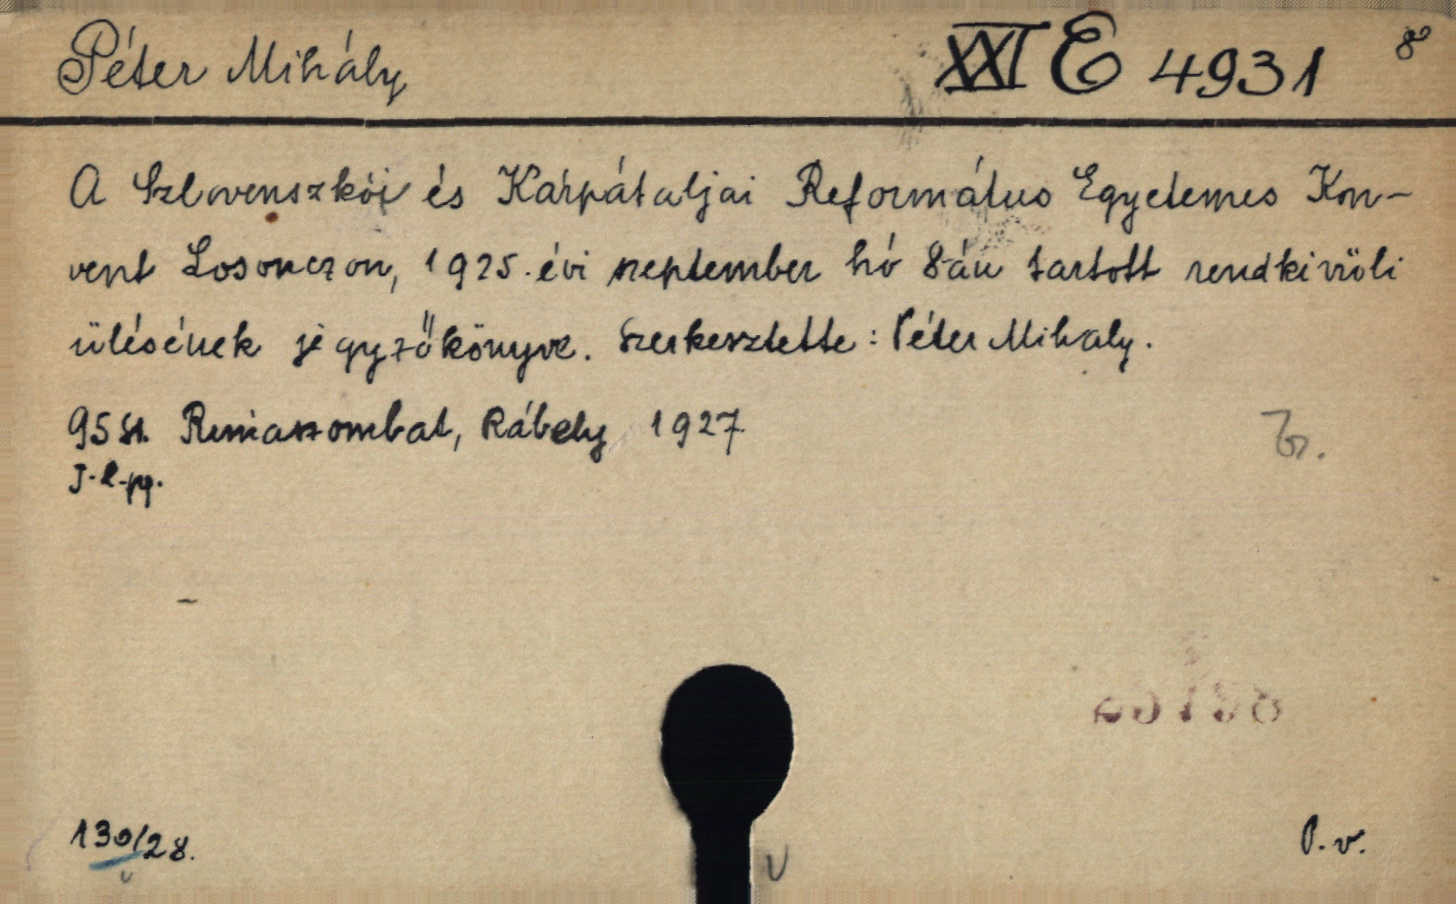 Péter Mihály XXI E 4931 8°
A Szlovenszkói és Kárpátaljai Református Egyetemes Kon-
vent Losonczon, 1925. évi szeptember hó 8-án tartott rendkivüli
ülésének jegyzőkönyve. Szerkesztette: Péter Mihaly.
95 St. Rimaszombat, Rábely 1927
130/28. P. v.